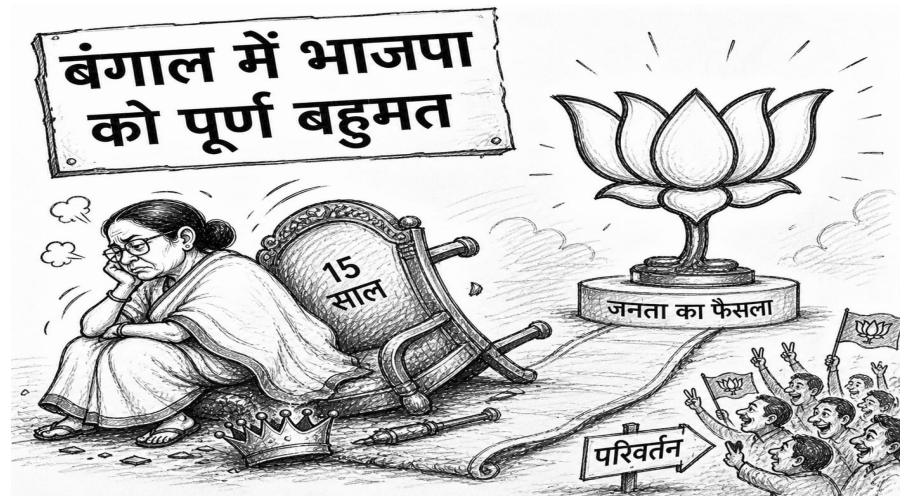 बंगाल में भाजपा
को पूर्ण बहुमत
15
साल
जनता का फैसला
परिवर्तन